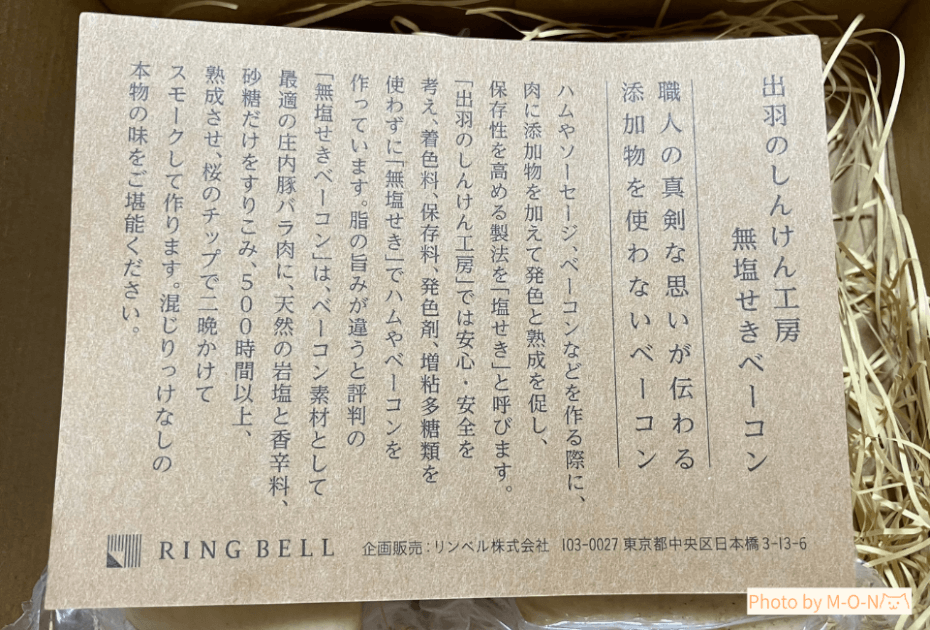 出羽のしんけん工房
無塩せきベーコン
職人の真剣な思いが伝わる
添加物を使わないベーコン
ハムやソーセージ、ベーコンなどを作る際に、
肉に添加物を加えて発色と熟成を促し、
保存性を高める製法を「塩せき」と呼びます。
「出羽のしんけん工房」では安心・安全を
考え、着色料、保存料、発色剤、増粘多糖類を
使わずに「無塩せき」でハムやベーコンを
作っています。脂の旨みが違うと評判の
「無塩せきベーコン」は、ベーコン素材として
最適の庄内豚バラ肉に、天然の岩塩と香辛料、
砂糖だけをすりこみ、500時間以上、
熟成させ、桜のチップで二晩かけて
スモークして作ります。混じりっけなしの
本物の味をご堪能ください。
RING BELL 企画販売：リンベル株式会社 103-0027 東京都中央区日本橋3-13-6
Photo by M-O-N